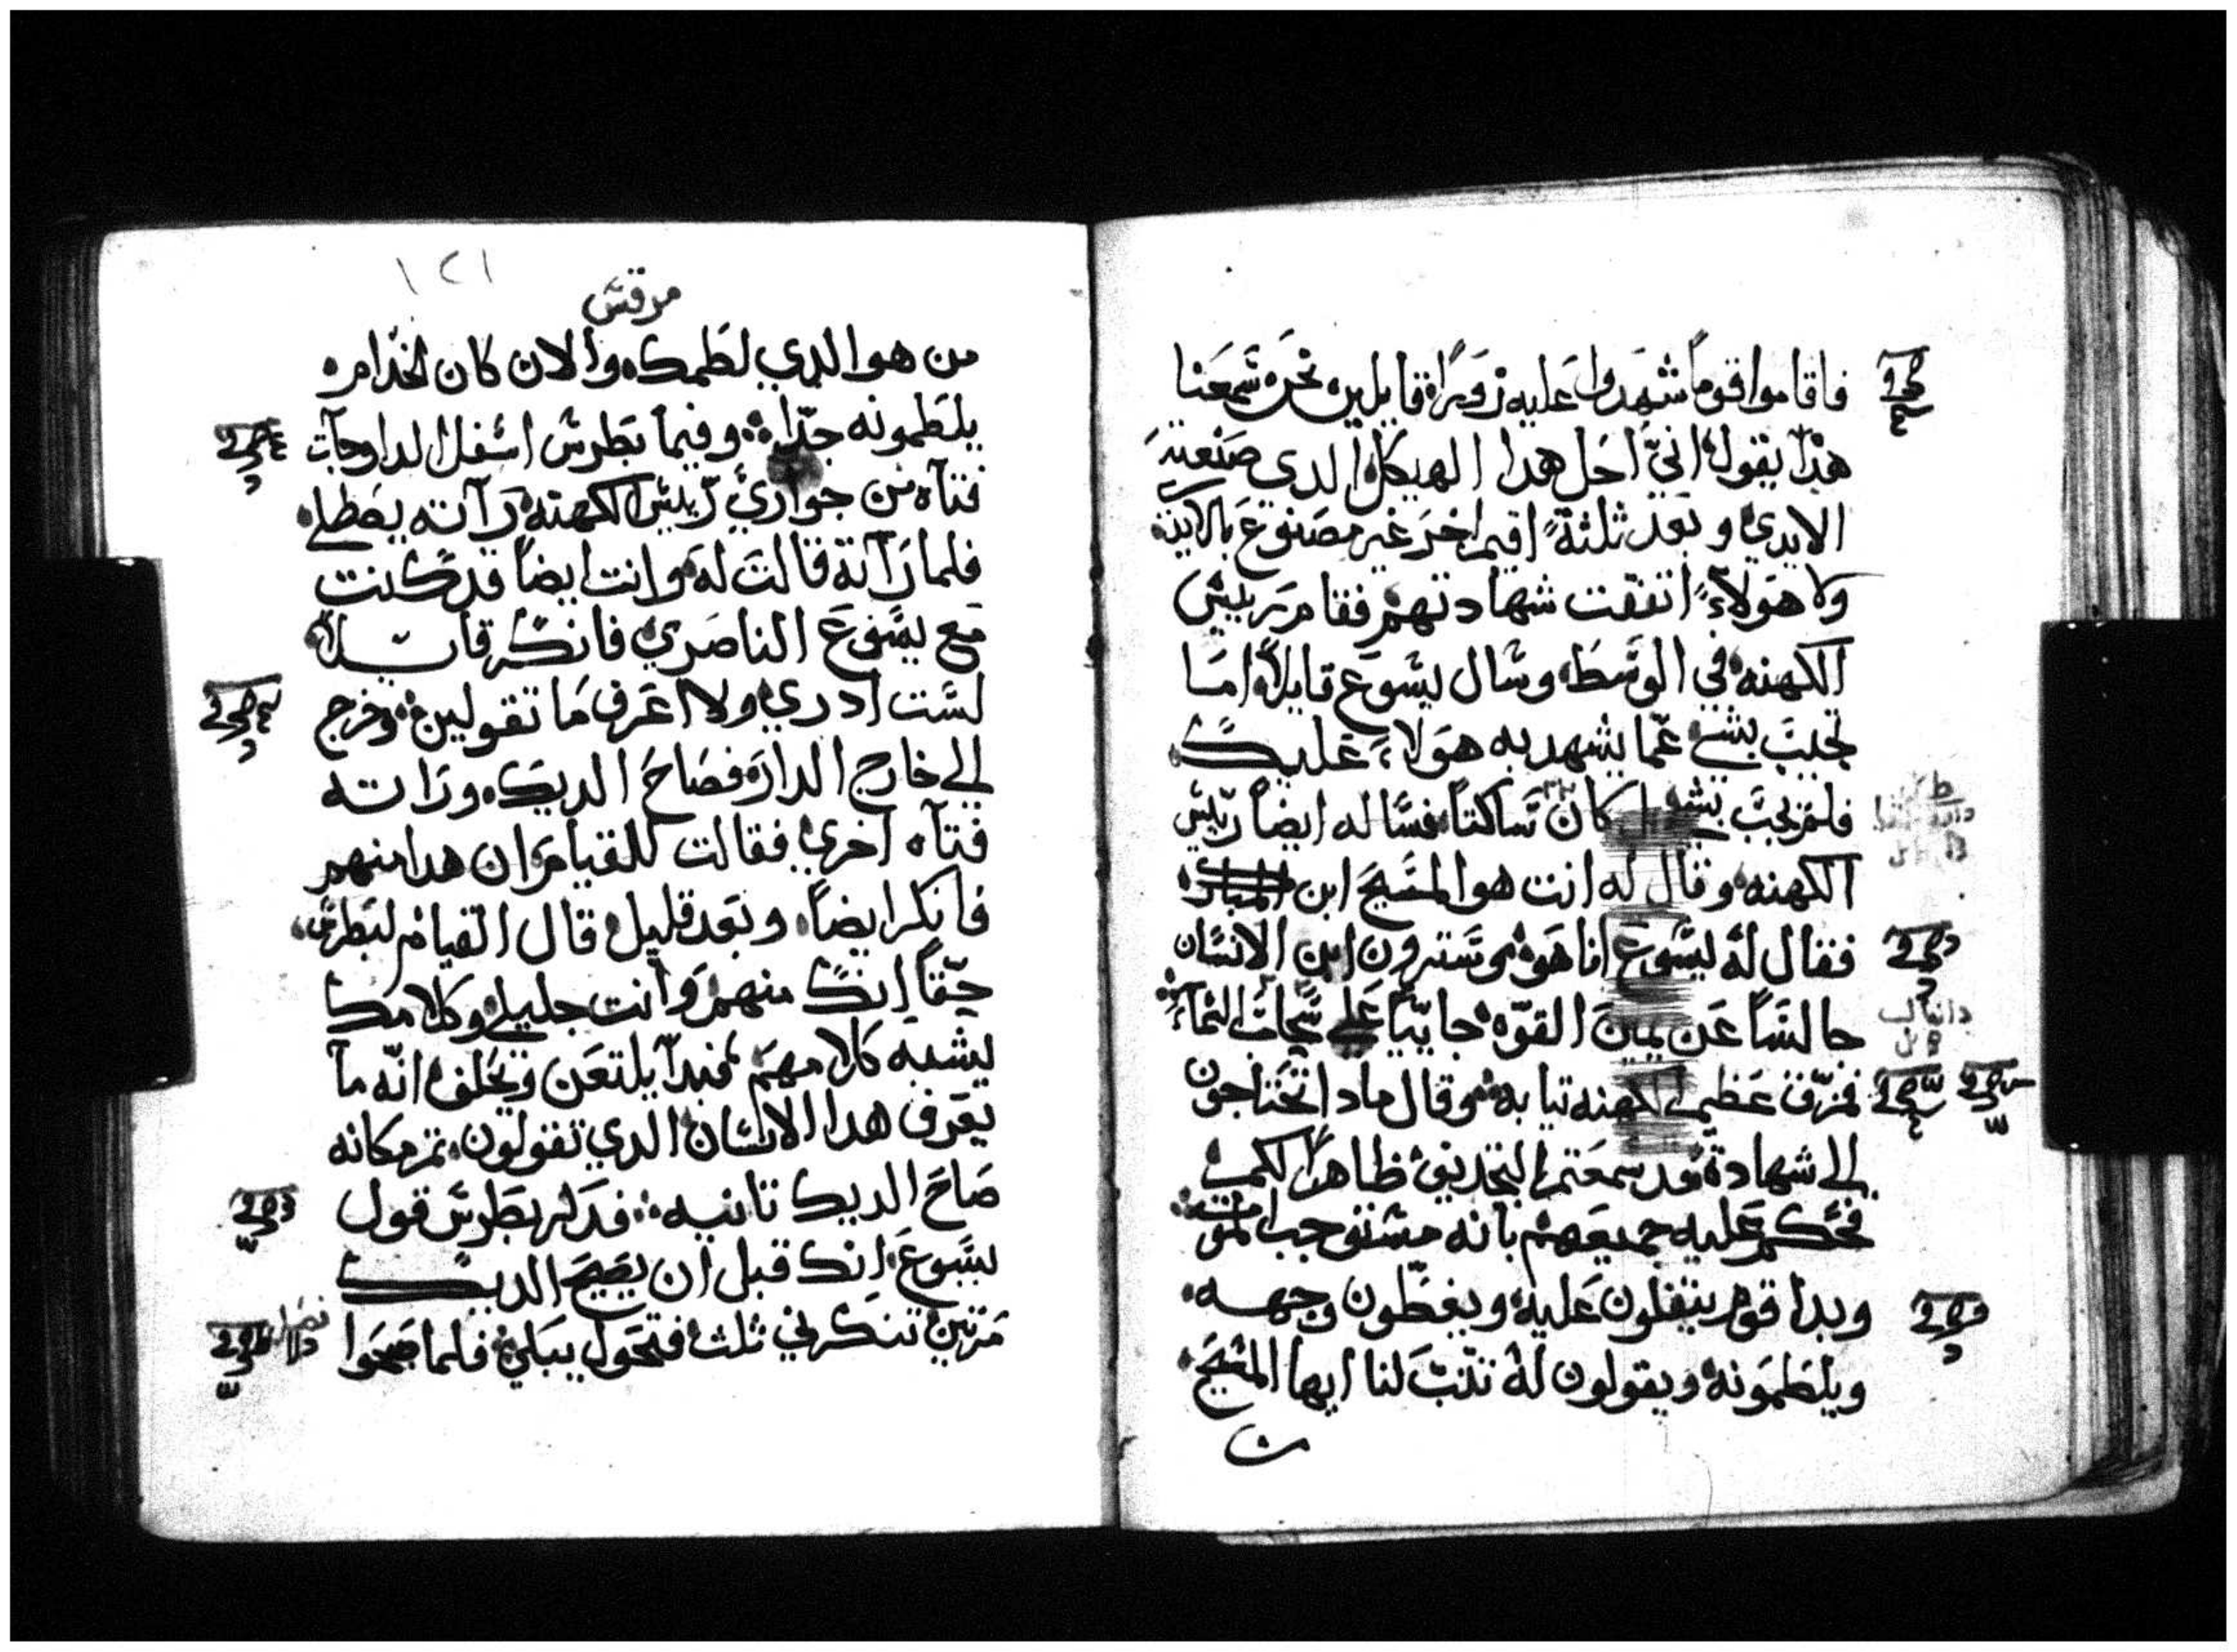 فاقاموا قوماً شهدوا عليه زوراً قايلين نحن سمعنا
هذا يقول اني احل هدا الهيكل الدي صنعته
الايدي وبعد ثلثة اقيم اخر غير مصنوع بالايدي
ولا هولاء اتفقت شهادتهم فقام رييس
الكهنه في الوسط وسال يسوع قايلاً اما
تجيب بشي عما يشهد به هولاء عليك
فلم يجب بشي كان ساكتاً فساله ايضاً رييس
الكهنه وقال له انت هو المسيح ابن المبارك
فقال له يسوع انا هو وسترون ابن الانسان
جالساً عن يمين القوه جايياً علي سحاب السماء
فمزق عظيم الكهنه تيابه وقال مادا تحتاجون
الي شهادة قد سمعتم التجديف ظاهراً لكم
فحكم عليه جميعهم بانه مستوجب الموت
وبدا قوم يتفلون عليه ويغطون وجهه
ويلطمونه ويقولون له تنب لنا ايها المسيح
من
١٢١
مرقس
من هو الدي لطمك والان كان الخدام
يلطمونه جداً وفيما بطرس اسفل الدار جات
فتاه من جواري رييس الكهنه راته يصطلي
فلما راته قالت له وانت ايضاً قد كنت
مع يسوع الناصري فانكر قايلاً
لست ادري ولا اعرف ما تقولين وخرج
الي خارج الدار فصاح الديك وراته
فتاه اخري فقالت للقيام ان هدا منهم
فانكر ايضاً وبعد قليل قال القيام لبطرس
حقاً انك منهم وانت جليلي وكلامك
يشبه كلامهم فبدا يلتعن ويحلف انه ما
يعرف هدا الانسان الدي تقولون تم مكانه
صاح الديك تانيه فدكر بطرس قول
يسوع انك قبل ان يصيح الديك
مرتين تنكرني ثلث فتحول يبكي فلما اصبحوا
فصل